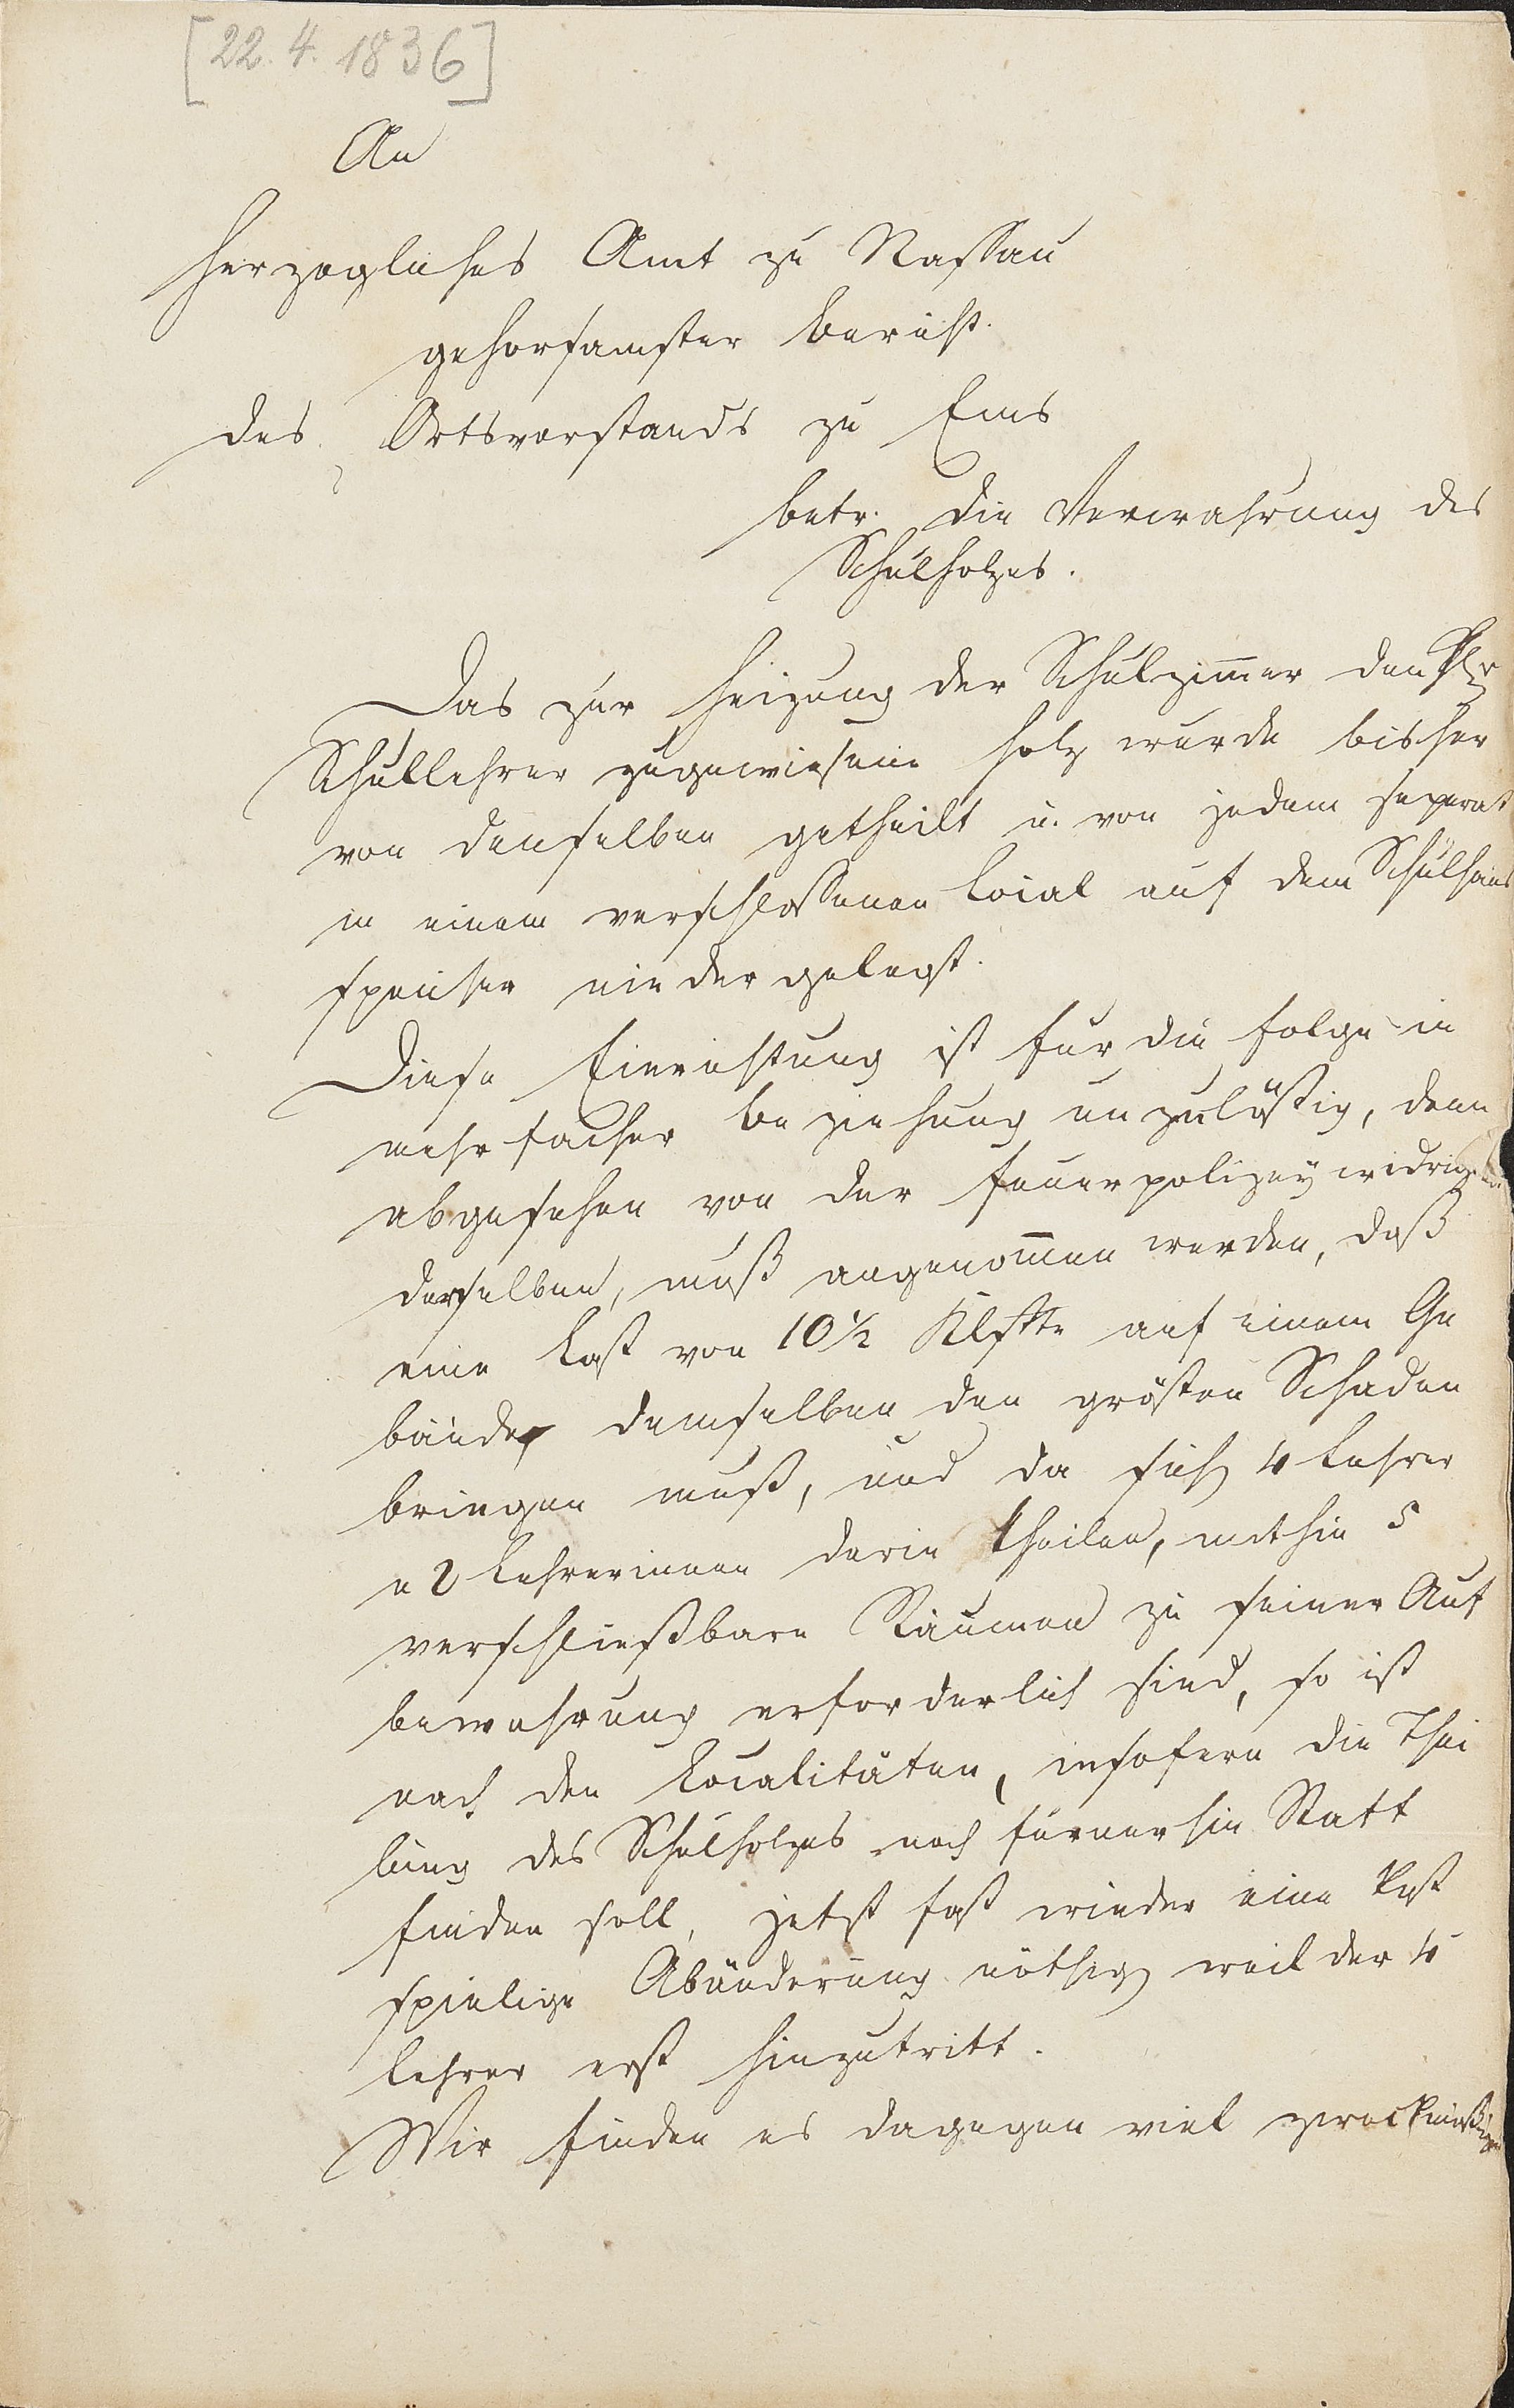 [22. 4. 1836]
An
Herzogliches Amt zu Nassau
gehorsamster Bericht
des Ortsvorstands zu Ems
betr. die Verwahrung des
Schulholzes.
Das zur Heizung der Schulzim̅er den
Schullehrer zugewiesene Holz wurde bisher
von denselben getheilt u. von jedem separat
in einem verschlossenen Local auf dem Schulhaus
speicher nieder gelegt.
Diese Einrichtung ist für die Folge in
mehrfacher Beziehung unzulässig, denn
abgesehen von der feuerpolizeywidrigkeit
derselben, muß angenom̅en werden, daß
eine Last von 10 ½ Klftr auf einem Ge
bäude demselben den grösten Schaden
bringen muß, und da sich 4 Lehrer
u 2 Lehrerinnen darin theilen, mithin 5
verschließbare Räumen zu seiner Auf
bewahrung erforderlich sind, so ist
nach den Localitäten, insofern die Thei
lung des Schulholzes noch fürnerhin Statt
finden soll, jetzt fast wieder eine kost
spielige Abänderung nöthig weil der 4
Lehrer erst hinzutritt.
Wir finden es dagegen viel zweckmäßiger